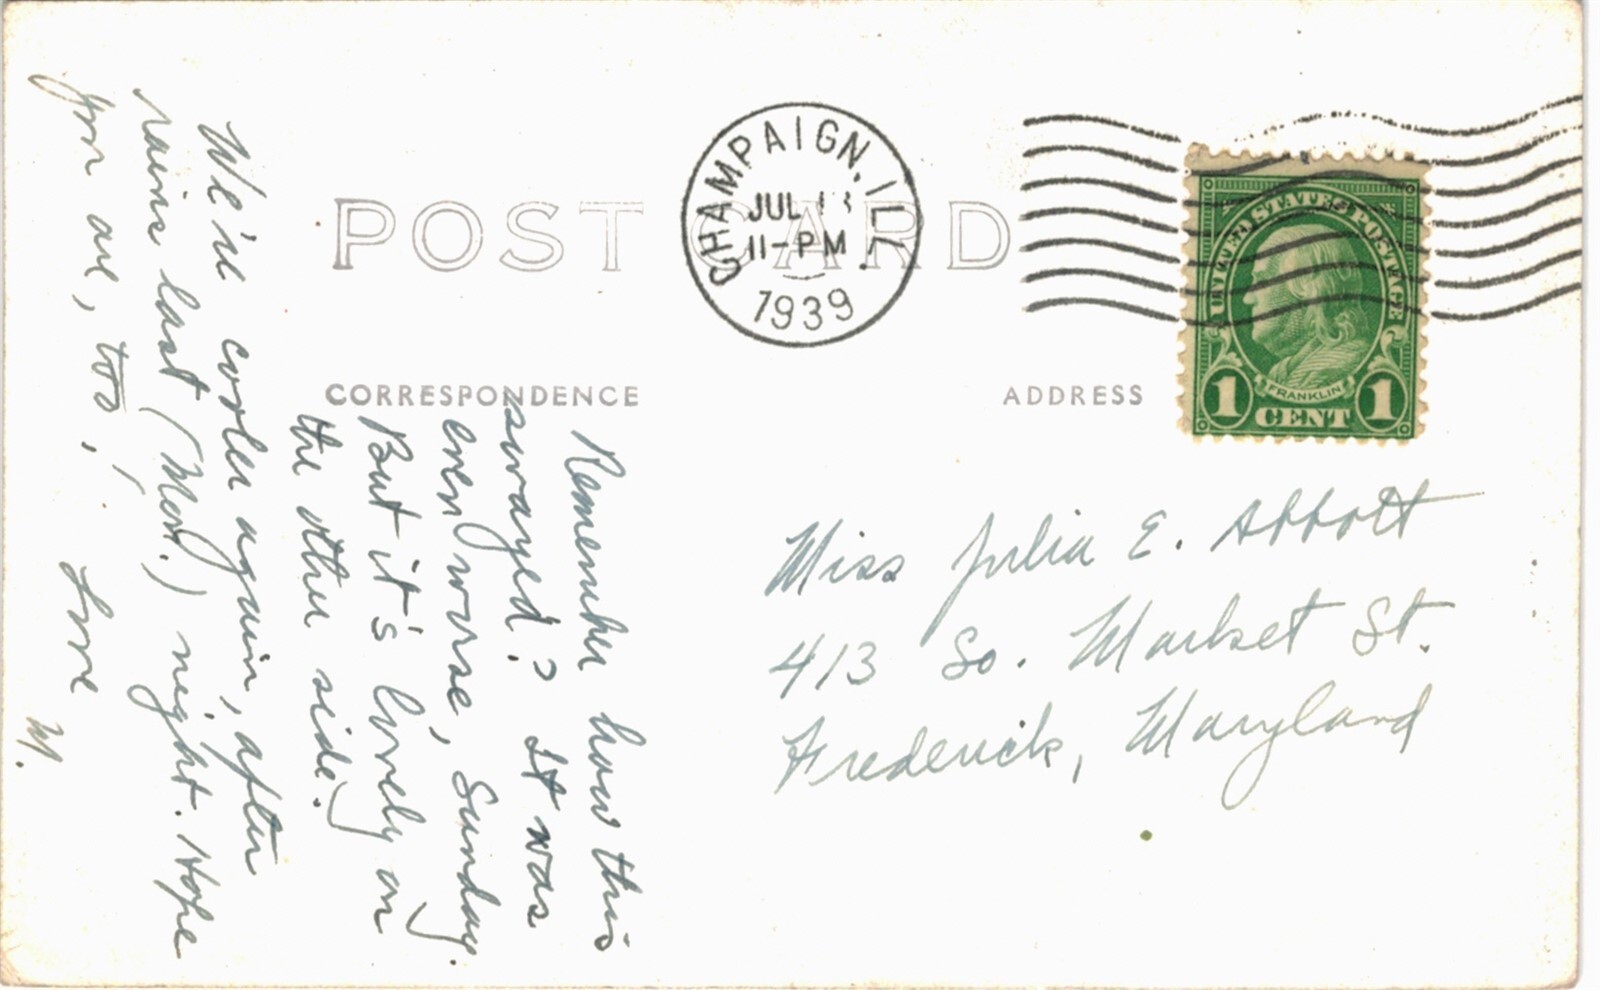 POST CARD
CHAMPAIGN, ILL.
JUL 13
11-PM
1939
UNITED STATES POSTAGE
FRANKLIN
1 CENT 1
CORRESPONDENCE
ADDRESS
Remember how this
swayed? It was
even worse, Sunday.
But it's lovely on
the other side.
We're cooler again, after
rains last (Mon.) night. Hope
you are, too!
Love
W.
Miss Julia E. Abbott
413 So. Market St.
Frederick, Maryland